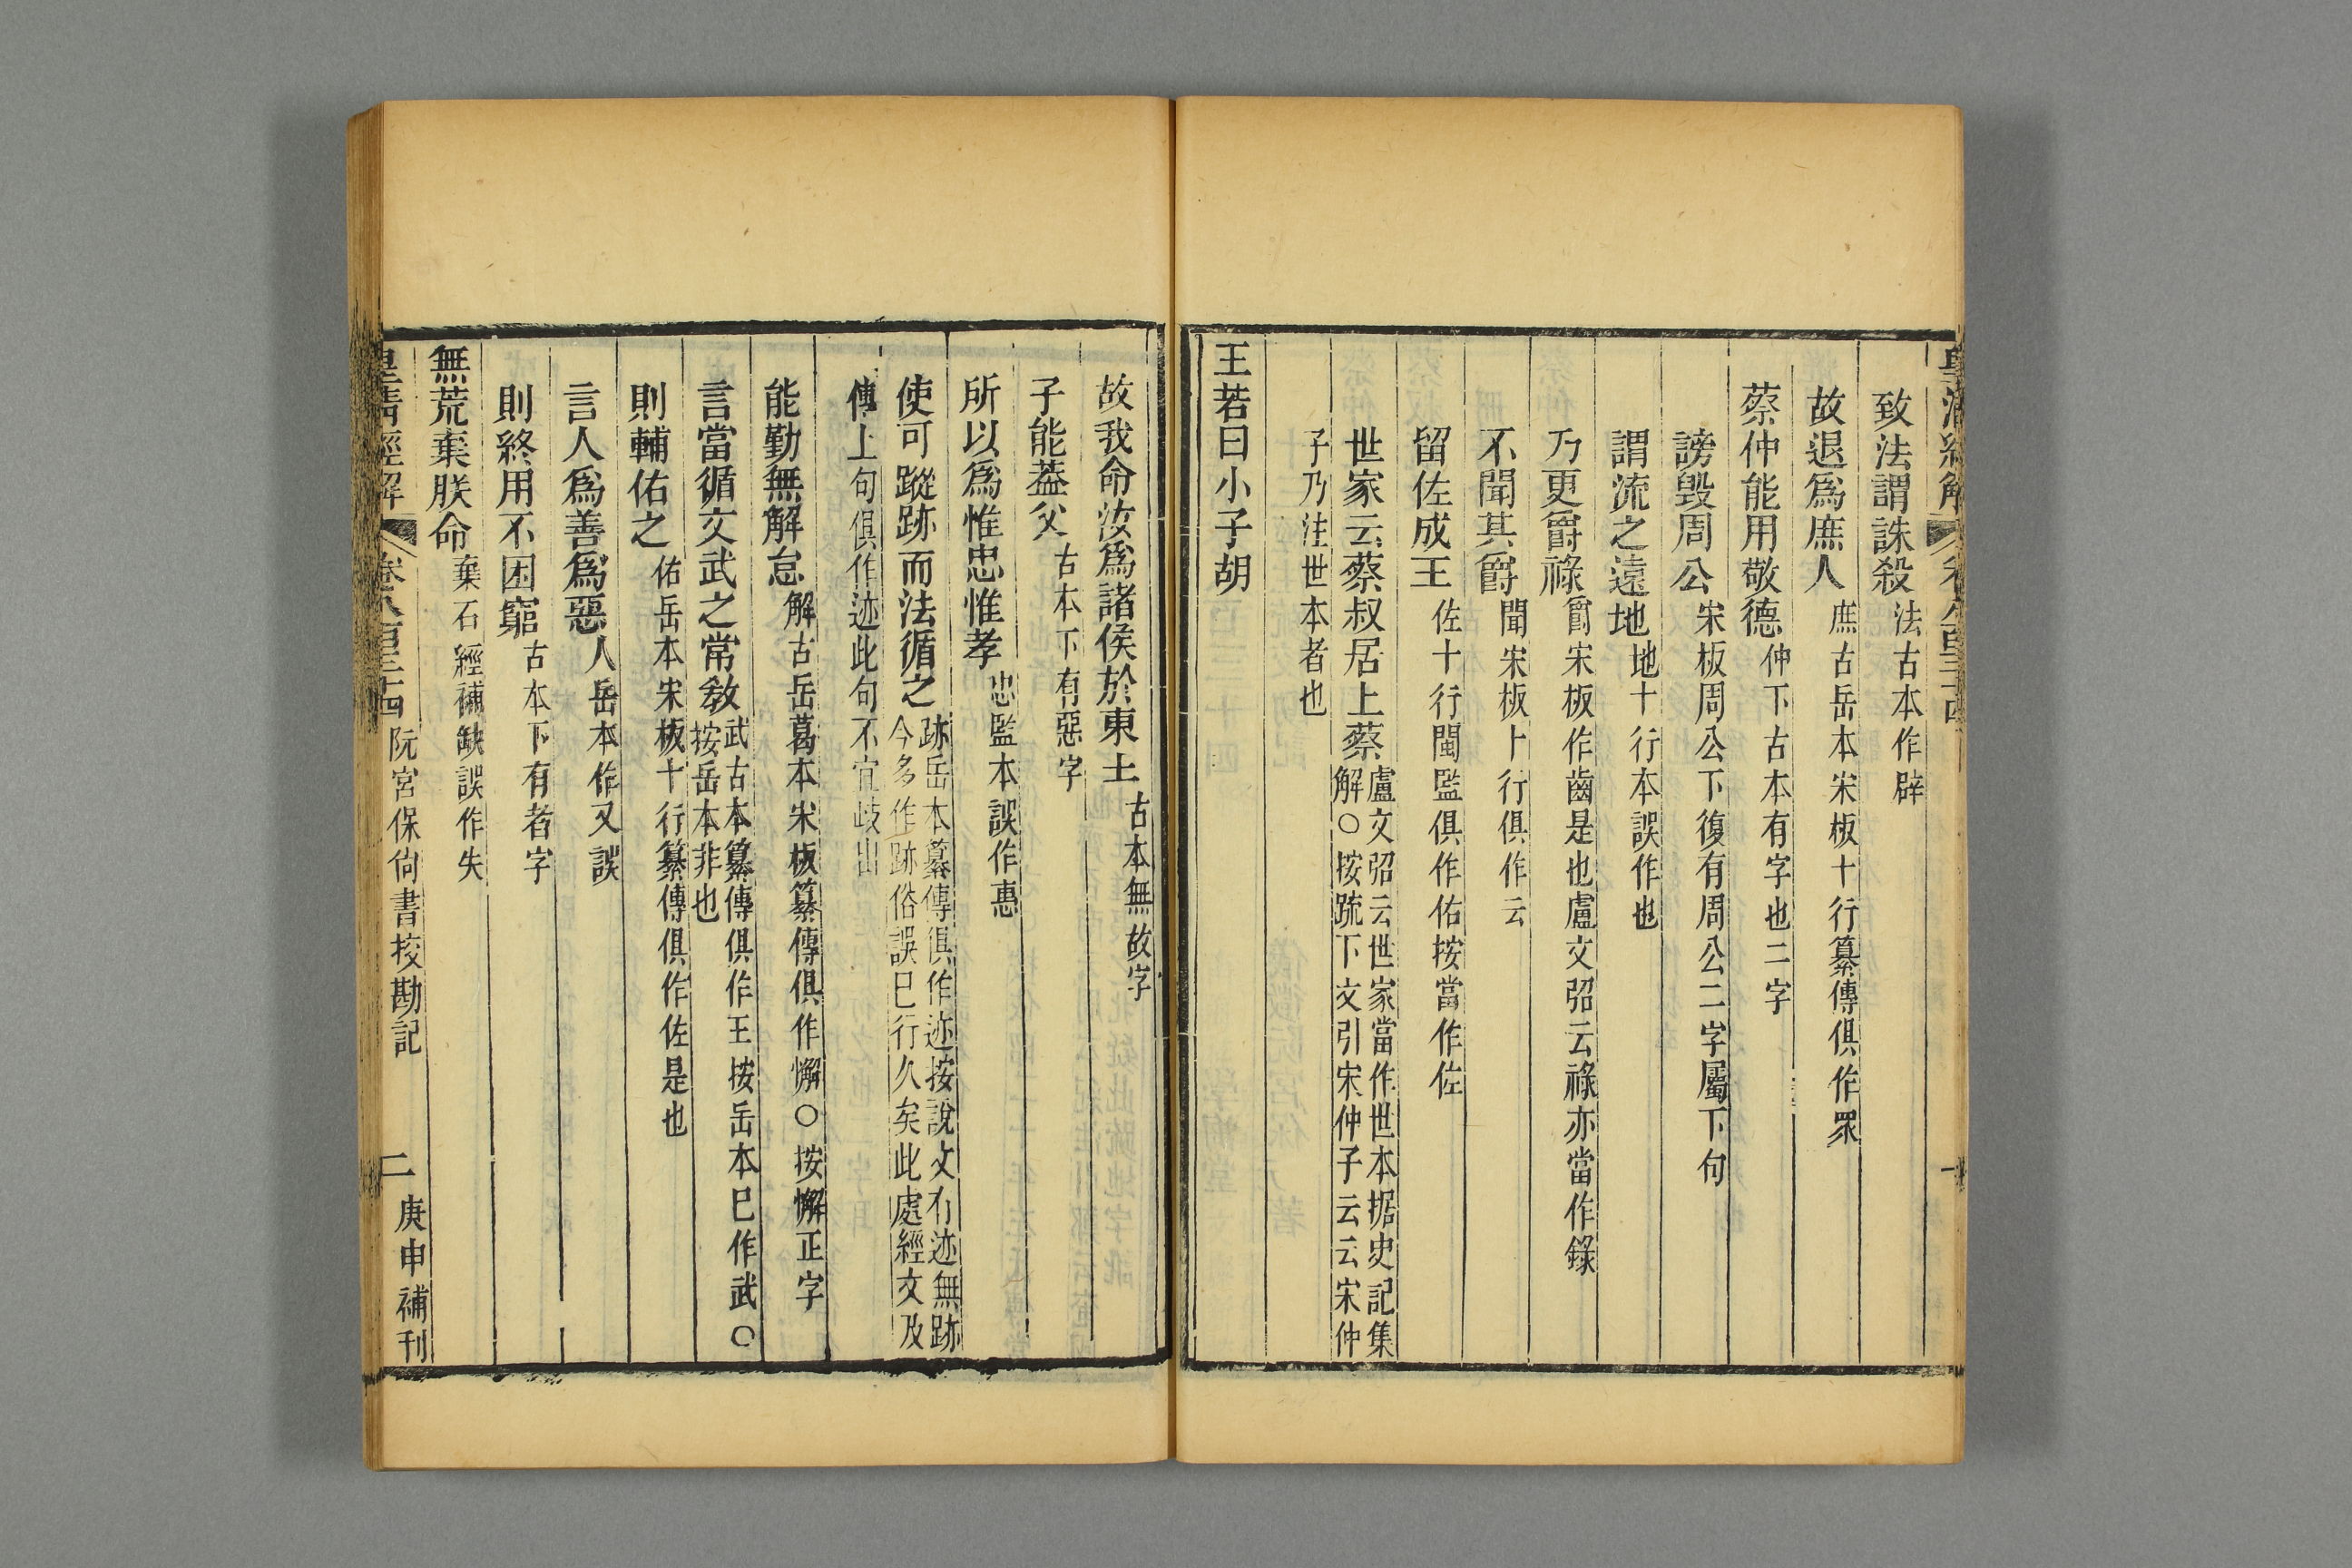 皇清經解 卷八百三十四 一
致法謂誅殺 法古本作辟
故退爲庶人 庶古岳本宋板十行纂傳俱作眾
蔡仲能用敬德 仲下古本有字也二字
謗毀周公 宋板周公下復有周公二字屬下句
謂流之遠地 地十行本誤作也
乃更爵祿 爵宋板作齒是也盧文弨云祿亦當作錄
不聞其爵 聞宋板十行俱作云
留佐成王 佐十行閩監俱作佑按當作佐
世家云蔡叔居上蔡 盧文弨云世家當作世本据史記集
解○按疏下文引宋仲子云云宋仲
子乃注世本者也
王若曰小子胡
故我命汝爲諸侯於東土 古本無故字
子能葢父 古本下有惡字
所以爲惟忠惟孝 忠監本誤作惠
使可蹤跡而法循之 跡岳本纂傳俱作迹按說文有迹無跡
今多作跡俗誤巳行久矣此處經文及
傳上句俱作迹此句不宜歧出
能勤無解怠 解古岳葛本宋板纂傳俱作懈○按懈正字
言當循文武之常敎 武古本纂傳俱作王按岳本巳作武○
按岳本非也
則輔佑之 佑岳本宋板十行纂傳俱作佐是也
言人爲善爲惡 人岳本作又誤
則終用不困窮 古本下有者字
無荒棄朕命 棄石經補缺誤作失
皇清經解 卷八百三十四 阮宮保尚書校勘記 二 庚申補刊